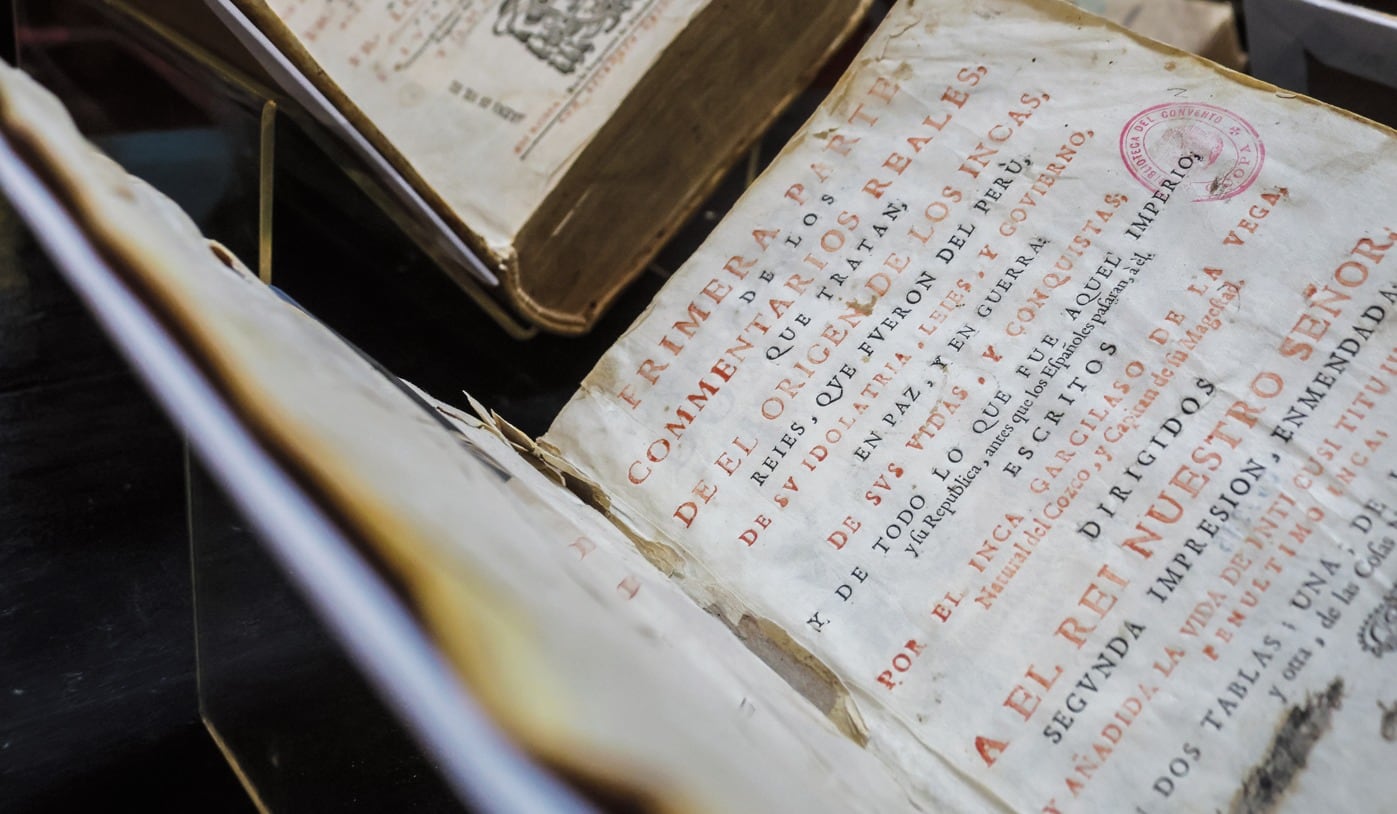 PRIMERA PARTE
DE LOS
COMMENTARIOS REALES,
QUE TRATAN,
DE EL ORIGEN DE LOS INCAS,
REIES, QVE FVERON DEL PERÙ,
DE SV IDOLATRIA, LEIES, Y GOVIERNO,
EN PAZ, Y EN GUERRA:
DE SVS VIDAS, Y CONQUISTAS,
Y DE TODO LO QUE FUE AQUEL IMPERIO,
y ſu Republica, antes que los Eſpañoles paſaran, à èl.
ESCRITOS
POR EL INCA GARCILASO DE LA VEGA,
Natural del Cozco, y Capitan de ſu Mageſtad.
DIRIGIDOS
A EL REI NUESTRO SEÑOR.
SEGVNDA IMPRESION, ENMENDADA
Y AÑADIDA LA VIDA DE INTI CUSI TITU
PENULTIMO INCA,
DOS TABLAS; UNA, DE
y otra, de las Coſas
BIBLIOTECA DEL CONVENTO